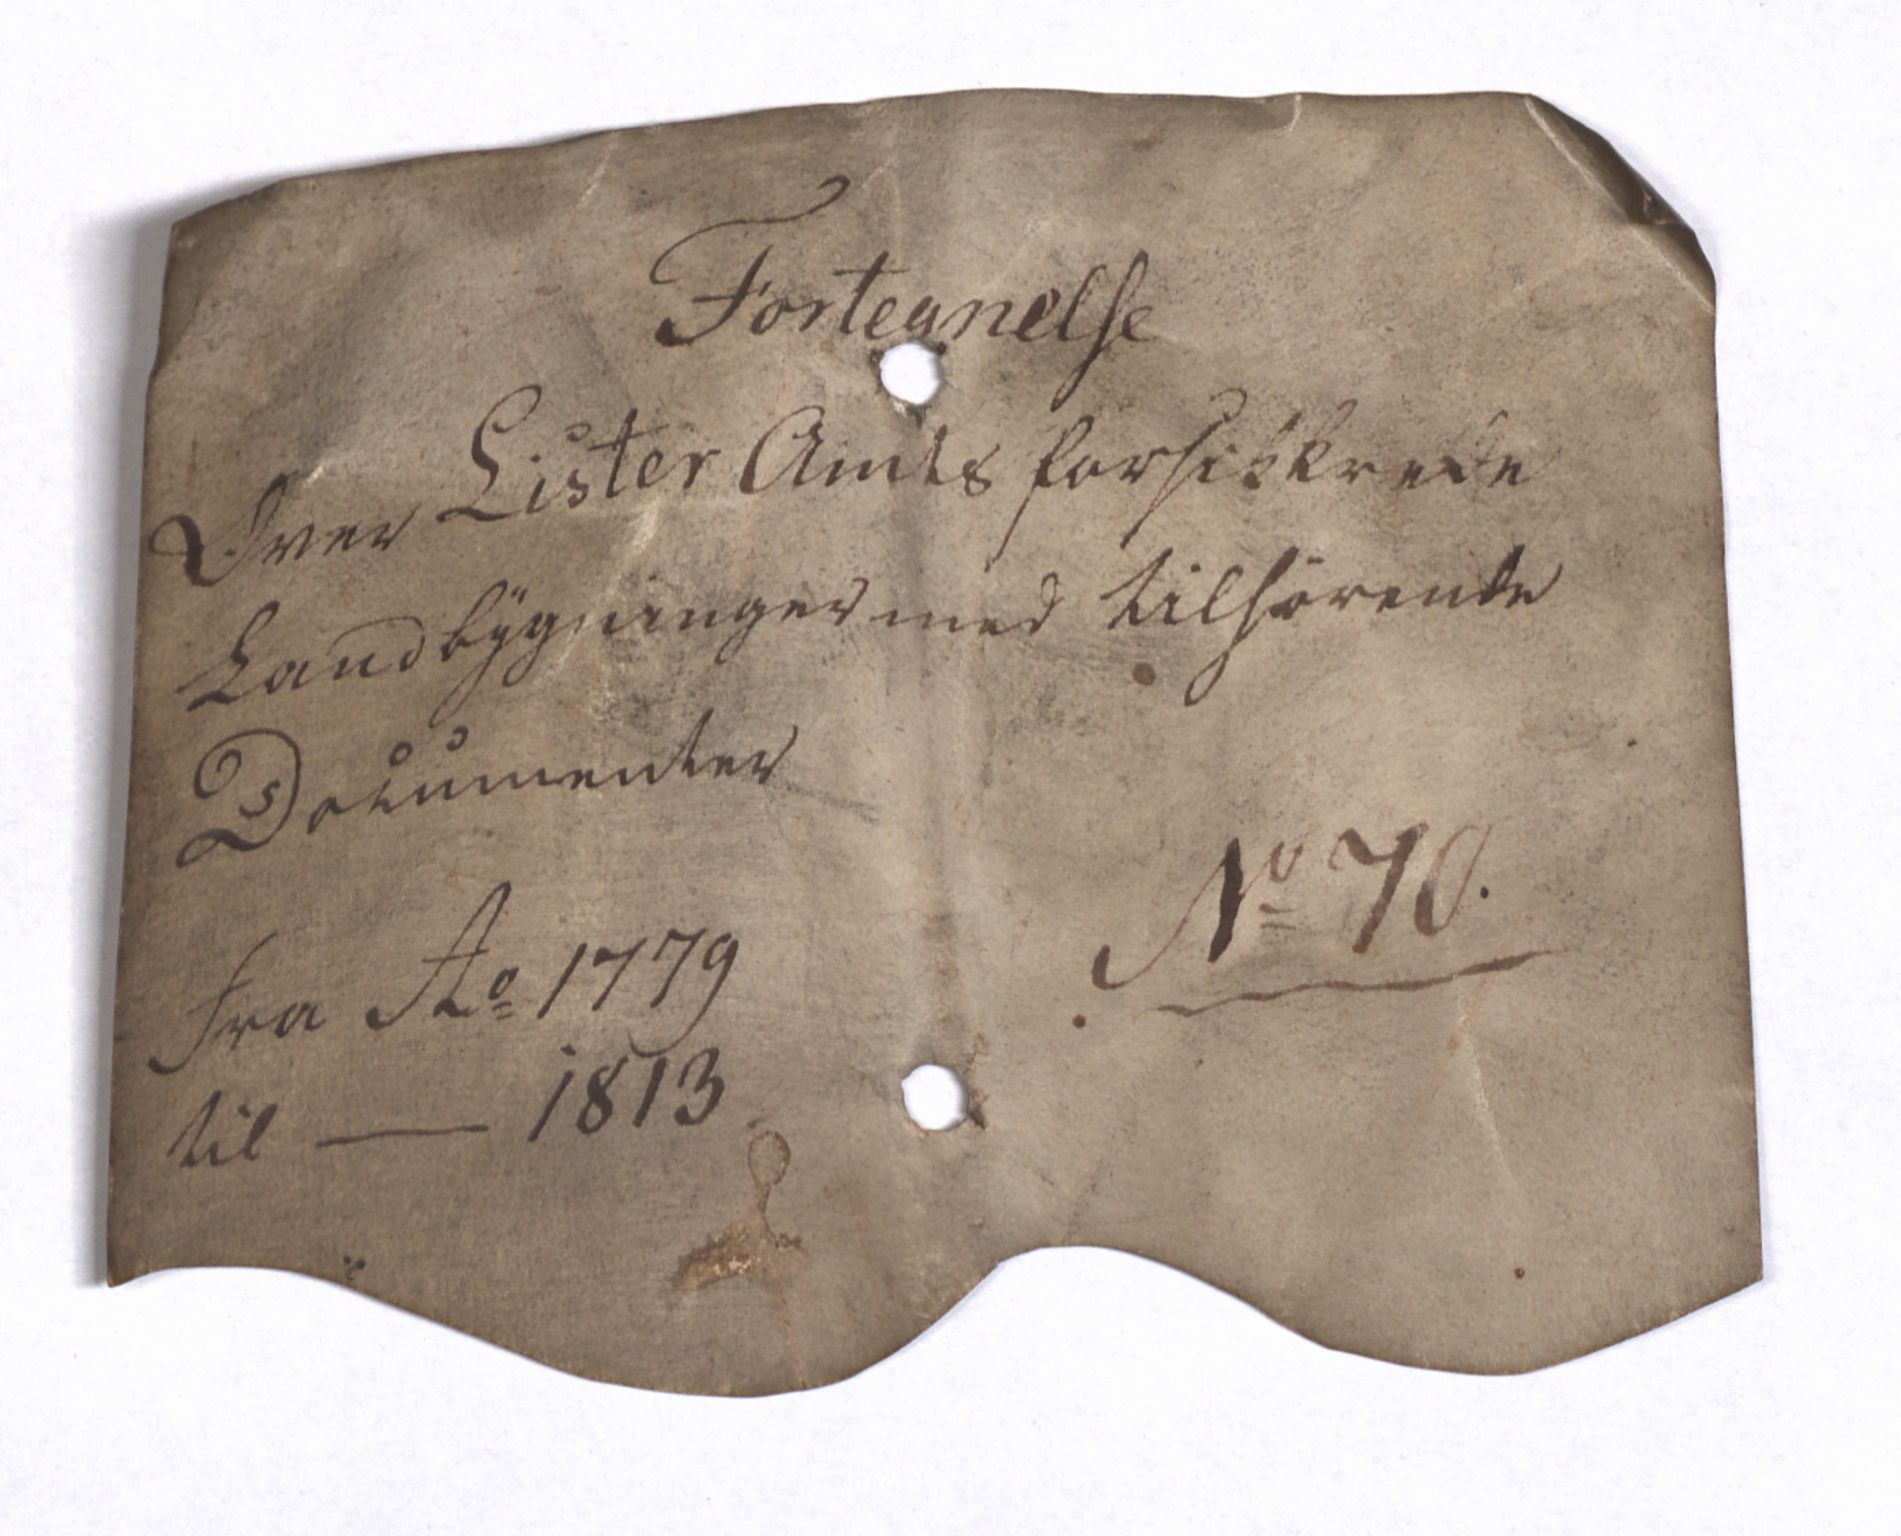 Fortegnelse
Over Lister Amts forsikkrede
Landbÿgninger med tilhörende
Documenter
fra Ao 1779
til — 1813
No 70.